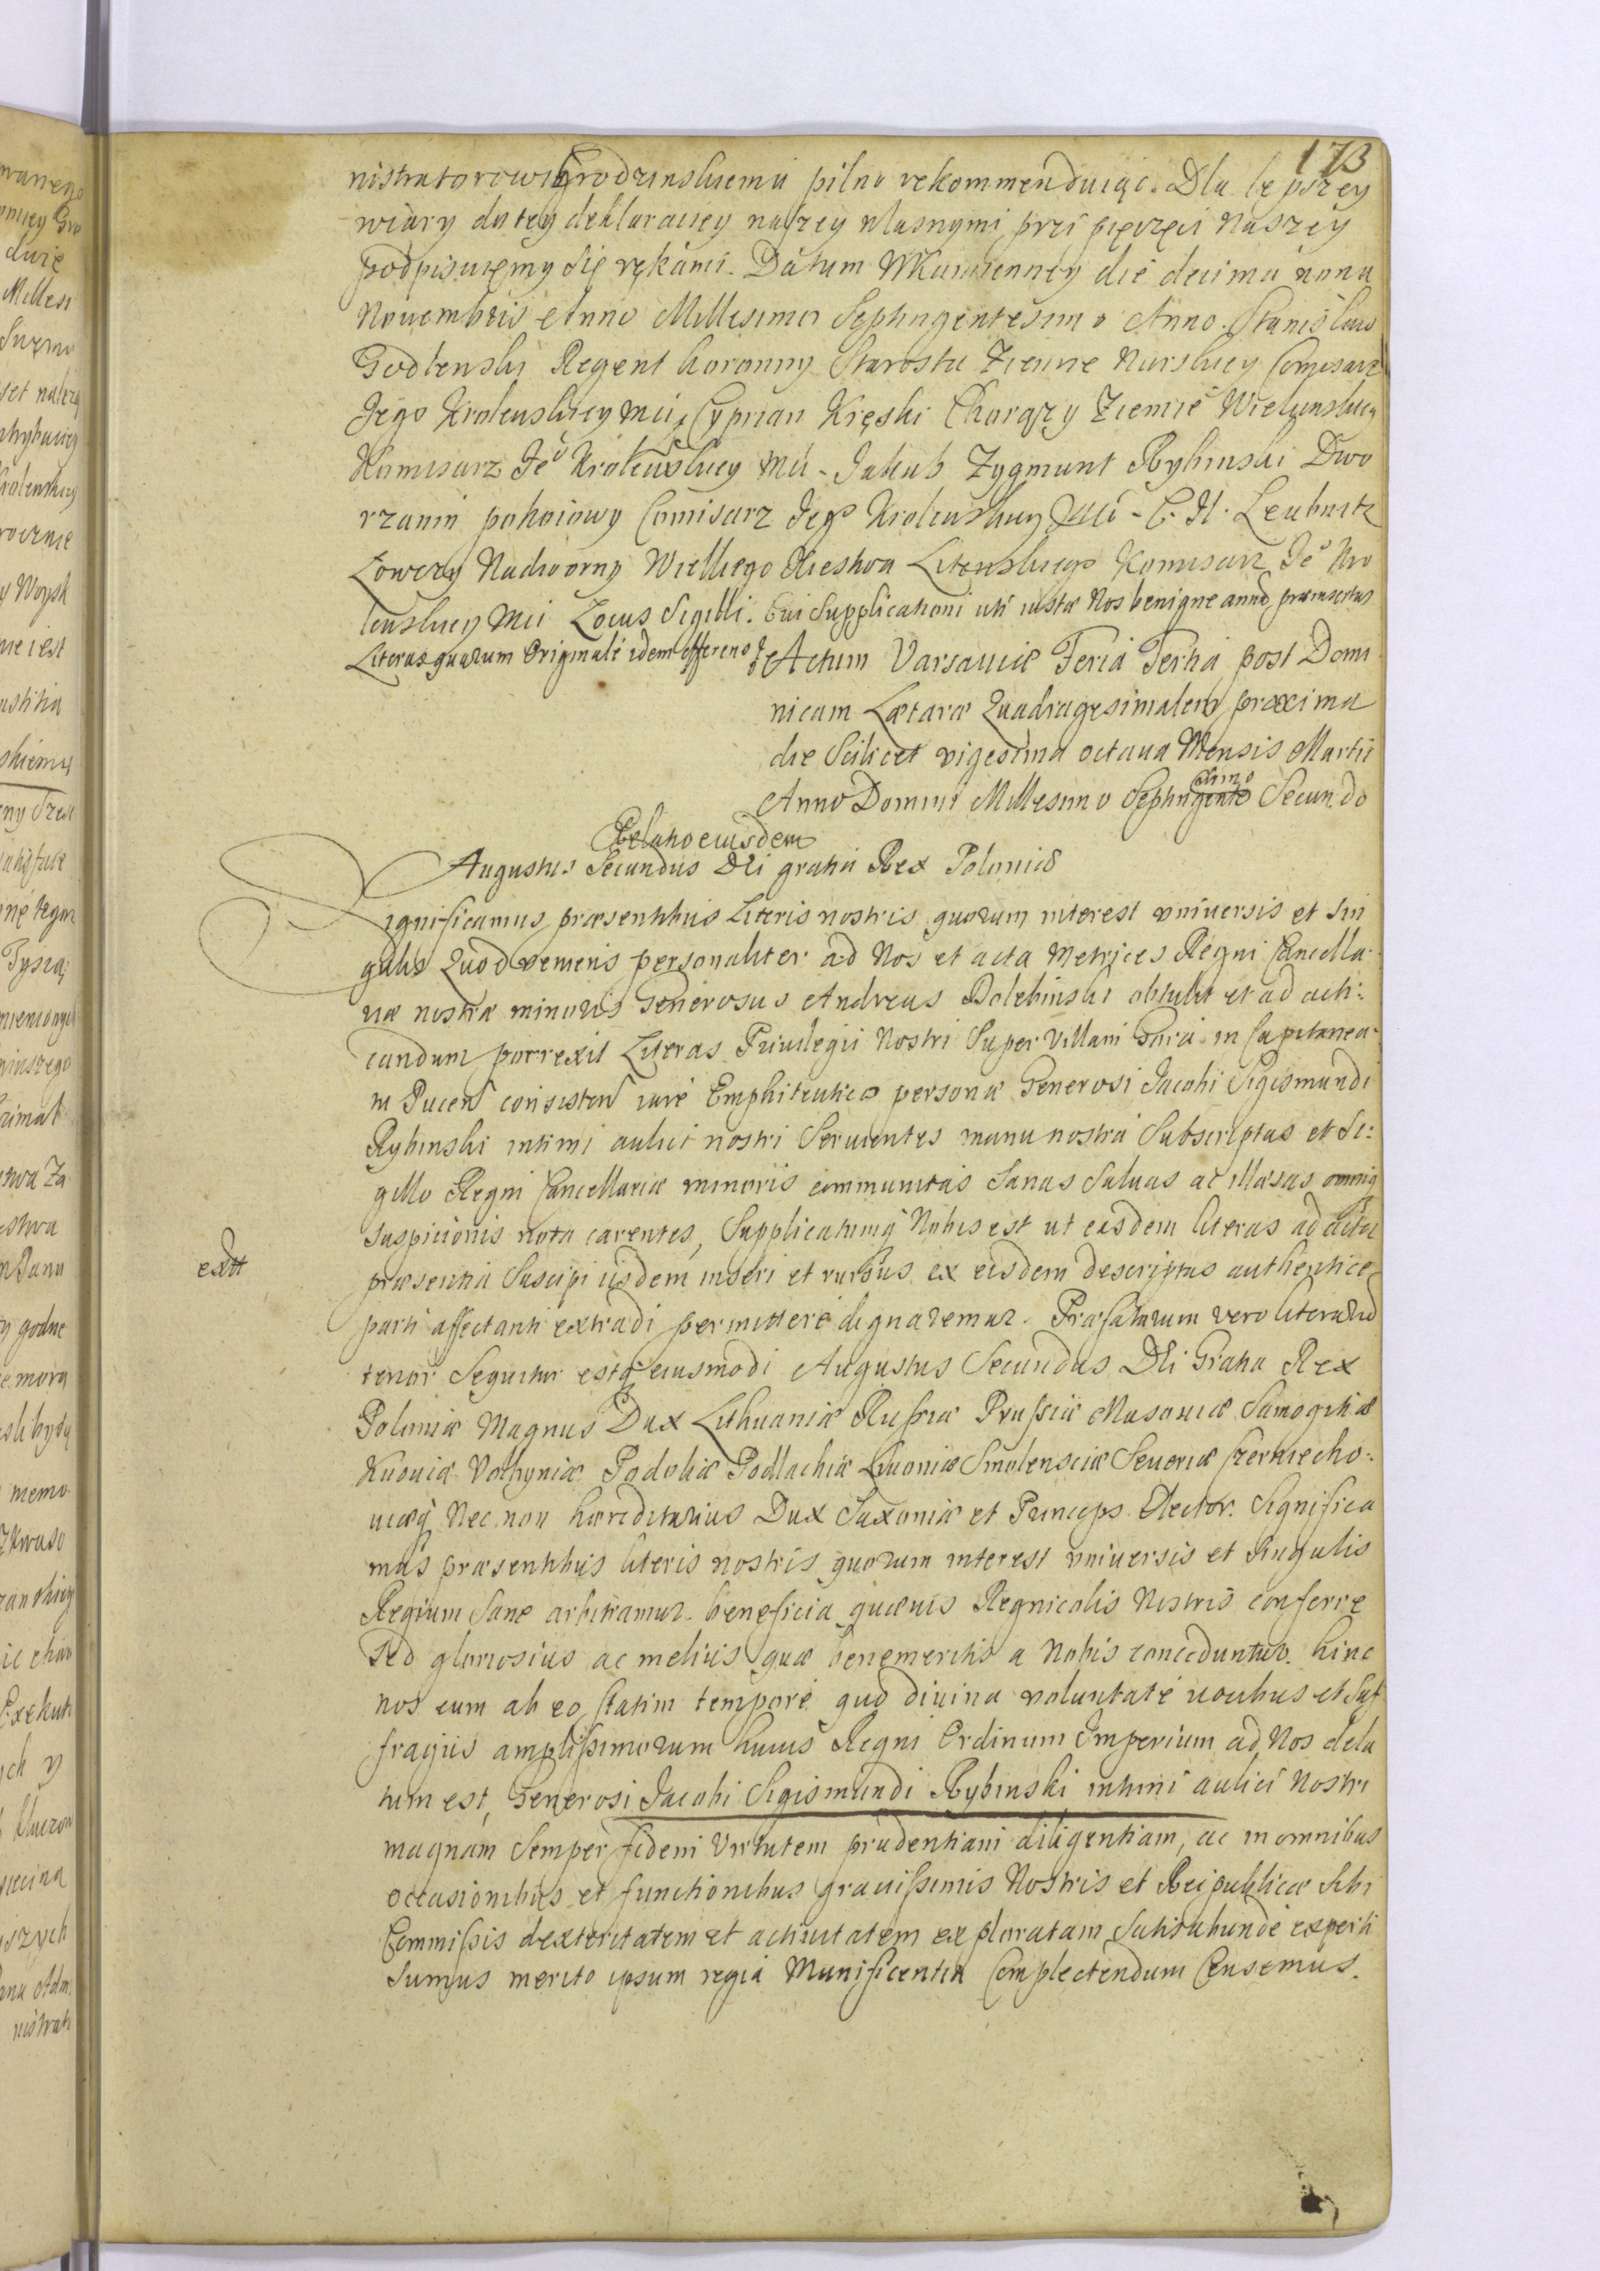 173
nistratorowi Grodzinskiemu pilno rekommenduiąc. Dla lepszey
wiary do tey deklaracyey naszey własnymi przi pięczęci Naszęy
podpisuięmy się rękami. Datum w Kamienney die decima nona
Novembris Anno Millesimo Septingentesimo Anno. Stanisław
Godlenski Regent koronny Starosta Ziemie Nurskiey Comisarz
Jego Krolewskiey Mci, Cyprian Kręski Chorąży Ziemie Wielunskiey
Komisarz Jeo Krolewskiey Mci - Jakub Zygmunt Rybinski Dwo
rzanin pokoiowy Comisarz Jego Krolewskiey Mci - C. H. Leubnitz
Łowczy Nadworny Wielkiego Xiestwa Litewskiego Komisarz Jeo Kro
lewskiey Mci Locus Sigilli. Cui Supplicationi uti iustæ Nos benigne annu præinsertas
Literas quarum Originale idem offereno
Actum Varsaviæ Feria Tertia post Domi
nicam Lætaræ Quadragesimalem proxima
die Scilicet vigesima octava Mensis Martii
Anno Domini Millesimo Septingento Secundo
Relatio eiusdem
Augustus Secundus Dei gratia Rex Poloniæ
Significamus præsentibus Literis nostris quorum interest universis et sin
gulis Quod veniens personaliter ad Nos et acta Metrices Regni Cancella-
riæ nostræ minoris Generosus Andreas Dolebinski obtulit et ad acti:
candum porrexit Literas Privilegii Nostri Super Villam Gora in Capitanea-
tu Pucen consisten iure Emphiteutico personæ Generosi Jacobi Sigismundi
Rybinski intimi aulici nostri Servientes manu nostra Subscriptas et Si:
gillo Regni Cancellariæ minoris communitas Sanas Salvas ac illæsas omniq
suspicionis nota carentes, Supplicatumq Nobis est ut easdem literas ad acta
extt
præsentia Suscipi iisdem inseri et rursus ex eisdem descriptas authentice
parti affectanti extradi permittere dignaremur. Præfatarum vero literarum
tenor Sequitur estq eiusmodi Augustus Secundus Dei Gratia Rex
Poloniæ Magnus Dux Lithuaniæ Russiæ Prussiæ Masoviæ Samogitiæ
Kijoviæ Volhyniæ Podoliæ Podlachiæ Livoniæ Smolensciæ Severiæ Czerniecho:
viæq Nec non hæreditarius Dux Saxoniæ et Princeps Elector. Significa
mus præsentibus literis nostris quorum interest universis et singulis
Regium Sane arbitramur beneficia quævis Regnicolis Nostris conferre
sed gloriosius ac melius quæ benemeritis a Nobis conceduntur. hinc
nos cum ab eo statim tempore quo divina voluntate vocibus et suf
fragiis amplissimorum huius Regni Ordinum Imperium ad Nos dela
tum est, Generosi Jacobi Sigismundi Rybinski intimi aulici Nostri
magnam Semper fidem Virtutem prudentiam diligentiam, ac in omnibus
occasionibus et functionibus gravissimis Nostris et Reipublicæ Sibi
Commissis dexteritatem et activitatem exploratam satisabunde experti
sumus merito ipsum regia Munificentia Complectendum Censemus.